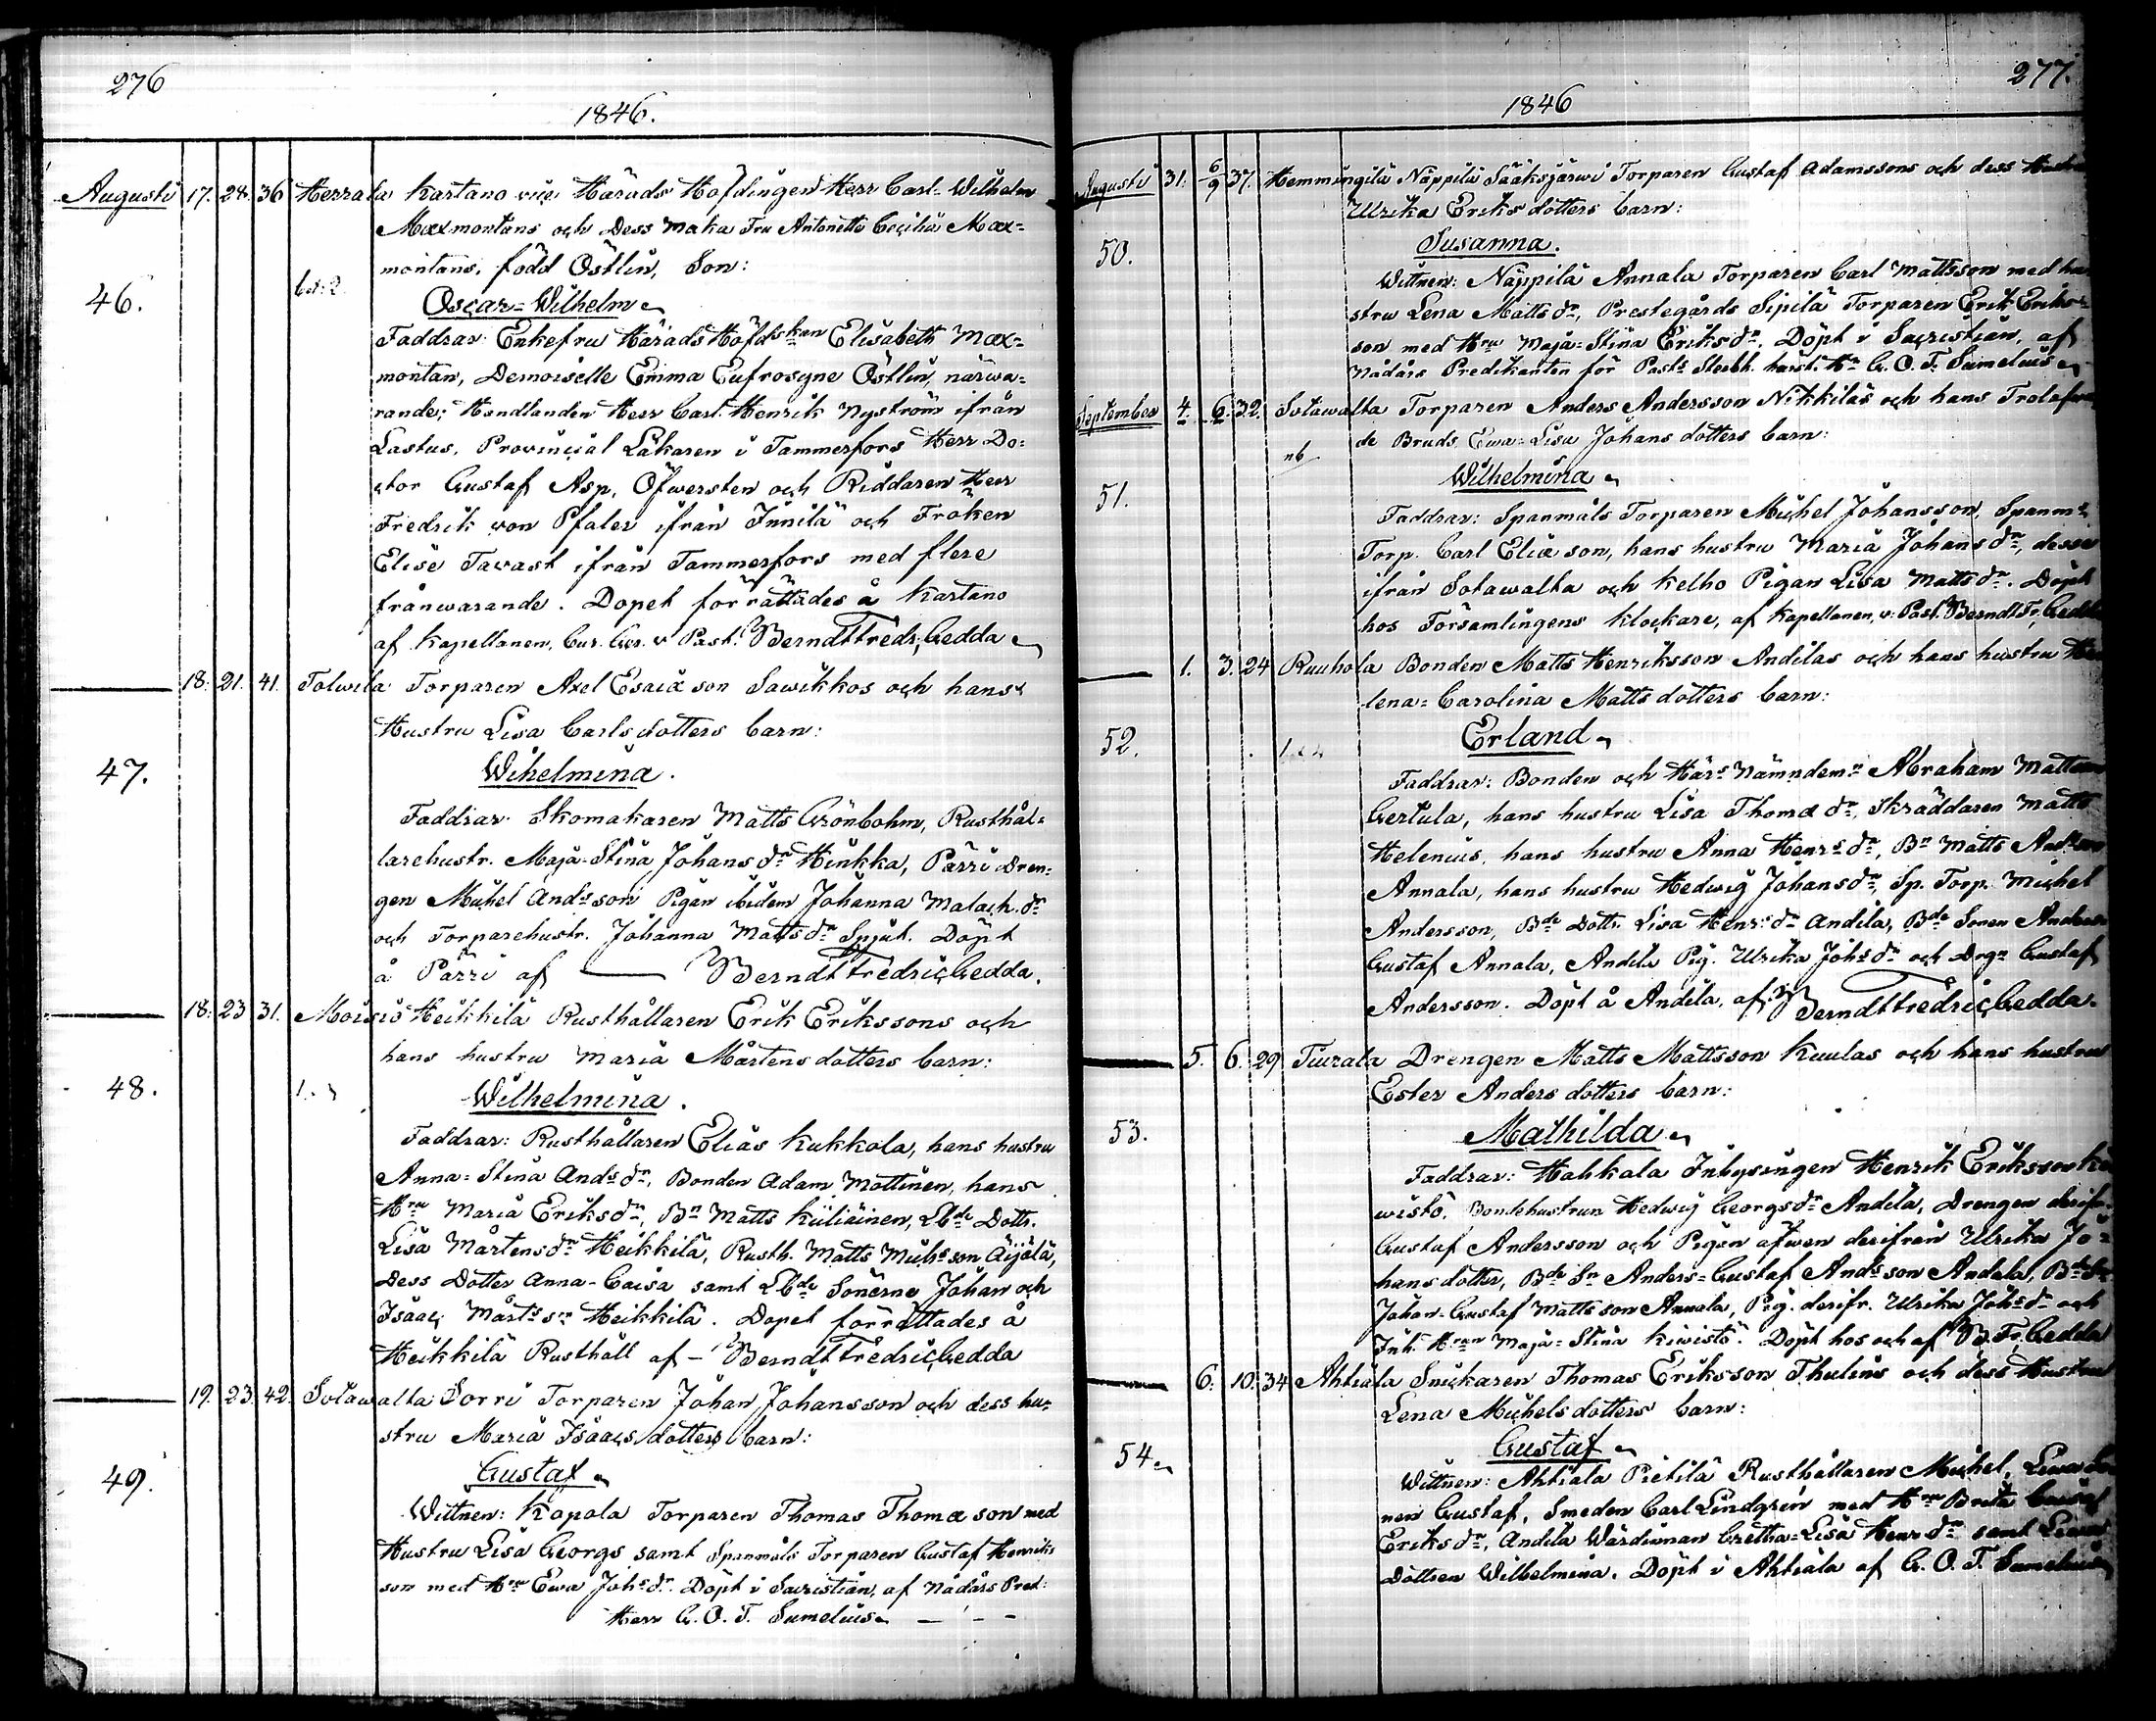 276
1846.
Augusti 17. 28. 36 Herrala Kartano vice Härads Höfdingen Herr Carl Wilhelm
Maxmontans och Dess maka Fru Antonette Cecilia Max=
montans, född Östlin, Son:
46.
Oscar=Wilhelm
Faddrar: Enkefru Härads Höfdskan Elisabeth Max=
montan, Demoiselle Emma Eufrosyne Östlin, närwa=
rande; Handlanden Herr Carl Henrik Nyström ifrån
Lastus, Provincial Läkaren i Tammerfors Herr Do=
ctor Gustaf Asp, Öfwersten och Riddaren Herr
Fredrik von Pfaler ifrån Innilä och Fröken
Elise Tavast ifrån Tammerfors med flere
frånwarande. Dopet förrättades å Kartano
af Kapellanen, Cur. Ger. v Past. Berndt Fredr. Gedda
18. 21. 41. Tolwila Torparen Axel Esaiæ son Sawikkos och hans
Hustru Lisa Carlsdotters barn:
47.
Wihelmina.
Faddrar. Skomakaren Matts Grönbohm, Rusthål=
larehustr. Maja-Stina Johans dr Hinkka, Pärri Dren=
gen Michel Andsson Pigan ibidem Johanna Malach. dr
och Torparehustr. Johanna Matts dr Spjut. Döpt
å Pärri af — Berndt Fredric Gedda.
18. 23 31. Moisio Heikkilä Rusthållaren Erik Erikssons och
hans hustru Maria Mårtensdotters barn:
48.
Wilhelmina.
Faddrar: Rusthållaren Elias Kukkola, hans hustru
Anna=Stina Ands dr, Bonden Adam Mattinen, hans
Hru Maria Eriks dr, Bn Matts Kiiliäinen, Lbde Dottr.
Lisa Mårtens dr Heikkilä, Rusth. Matts Michsson Äijälä,
Dess Dotter Anna-Caisa samt Lbde Sönerne Johan och
Isaac Mårts sr Heikkilä. Dopet förrättades å
Heikkilä Rusthåll af — Berndt Fredric Gedda
19. 23. 42. Sotawalta Sorri Torparen Johan Johansson och dess hu=
stru Maria Isaacsdotters barn:
49.
Gustaf
Wittnen: Kopola Torparen Thomas Thomæ son med
Hustru Lisa Georgs samt Spanmåls Torparen Gustaf Henriks
son med Hru Ewa Johs dr. Döpt i Sacristian, af Nådårs Pred:
Herr G. O. T. Sumelius — — —
277.
1846
Augusti 31. 6/9 37. Hemmingilä Näppilä Sääksjärwi Torparen Gustaf Adamssons och dess
Ulrika Eriksdotters barn:
50.
Susanna.
Wittnen: Näppilä Annala Torparen Carl Mattsson med hu
stru Lena Matts dr, Prestegårds Sipilä Torparen Erik Eriks=
son med Hru Maja=Stina Eriks dr, Döpt i Sacristian, af
Nådårs Predikanten för Pasts Sterbh. härst. Hr G. O. T. Sumelius
September 4. 6. 32. Sotawalta Torparen Anders Andersson Nikkiläs och hans Trolofwa
de Bruds Ewa=Lisa Johansdotters barn:
nb
51.
Wilhelmina
Faddrar: Spanmåls Torparen Michel Johansson, Spanms
Torp. Carl Eliæ son, hans hustru Maria Johans dr, desse
ifrån Sotawalta och Kelho Pigan Lisa Matts dr. Döpt
hos Församlingens Klockare, af Kapellanen, v: Past. Berndt Fr. Gedda
1. 3. 24 Ruuhola Bonden Matts Henriksson Andilas och hans hustru He
lena=Carolina Mattsdotters barn:
52.
Erland
Faddrar: Bonden och Härs Nämndemn Abraham Mattsson
Gertula, hans hustru Lisa Thomæ dr, Skräddaren Matts
Helenius, hans hustru Anna Henrs dr, Bn Matts Andsson
Annala, hans hustru Hedwig Johans dr, Sp. Torp. Michel
Andersson, Bde Dottr. Lisa Henrs dr Andila, Bde Sonen Anders
Gustaf Annala, Andila Pig. Ulrika Johs dr och Drgn Gustaf
Andersson. Döpt å Andila, af Berndt Fredric Gedda.
5. 6. 29 Tiurala Drengen Matts Mattsson Kuulas och hans hustru
Ester Andersdotters barn:
53.
Mathilda
Faddrar: Hahkala Inhysingen Henrik Eriksson Ki
wistö, Bondehustrun Hedwig Georgs dr Andila, Drengen derifr.
Gustaf Andersson och Pigan äfwen derifrån Ulrika Jo=
hansdotter, Bde Sn Anders=Gustaf Andsson Andala, Bde Sn
Johan-Gustaf Mattsson Annala, Pig. derifr. Ulrika Johs dr och
Inh. Hrun Maja=Stina Kiwistö. Döpt hos och af B. Fr. Gedda
6. 10. 34 Ahtiala Snickaren Thomas Eriksson Thulins och dess Hustru
Lena Michelsdotters barn:
54.
Gustaf
Wittnen: Ahtiala Pietilä Rusthållaren Michel,
nen Gustaf, Smeden Carl Lindgrén med Hru Brita
Eriks dr, Andila Wärdinnan Gretha=Lisa Henr dr samt
Dottren Wilhelmina. Döpt i Ahtiala af G. O. T. Sumelius